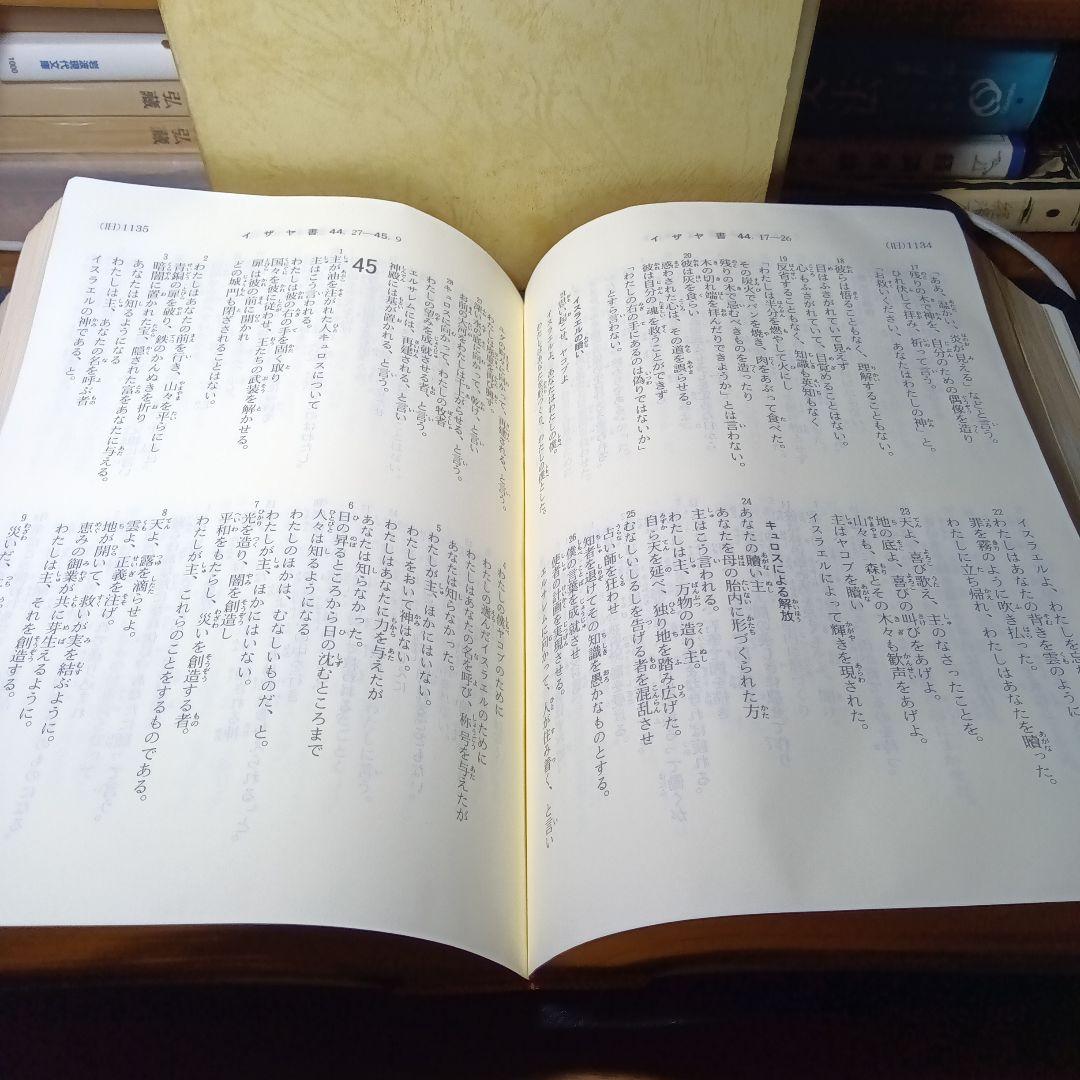 (旧)1134
イザヤ書 44.17―26
「ああ、温かい、炎が見える」などと言う。
17 残りの木で神を、自分のための偶像を造り
ひれ伏して拝み、祈って言う。
「お救いください、あなたはわたしの神」と。
18 彼らは悟ることもなく、理解することもない。
目はふさがれていて見えず
心もふさがれていて、目覚めることはない。
19 反省することもなく、知識も英知もなく
「わたしは半分を燃やして火にし
その炭火でパンを焼き、肉をあぶって食べた。
残りの木で忌むべきものを造ったり
木の切れ端を拝んだりできようか」とは言わない。
20 彼は灰を食らい
惑わされた心は、その道を誤らせる。
彼は自分の魂を救うことができず
「わたしの右の手にあるのは偽りではないか」
とすら言わない。
イスラエルの贖い
21 思い起こせ、ヤコブよ
イスラエルよ、あなたはわたしの僕。
イスラエルよ、わたしを忘
22 わたしはあなたの背きを雲のように
罪を霧のように吹き払った。
わたしに立ち帰れ、わたしはあなたを贖った。
23 天よ、喜び歌え、主のなさったことを。
地の底よ、喜びの叫びをあげよ。
山々も、森とその木々も歓声をあげよ。
主はヤコブを贖い
イスラエルによって輝きを現された。
キュロスによる解放
24 あなたの贖い主
あなたを母の胎内に形づくられた方
主はこう言われる。
わたしは主、万物の造り主。
自ら天を延べ、独り地を踏み広げた。
25 むなしいしるしを告げる者を混乱させ
占い師を狂わせ
知者を退けてその知識を愚かなものとする。
26 僕の言葉を成就させ
使者の計画を実現させる。
エルサレムに向かって、人が住み着く、と言い
(旧)1135
イザヤ書 44.27―45.9
ユダの町々に向かって、再建される、と言う。
27 深い水の底に向かって、乾け、と言い
お前の大河をわたしは干上がらせる、と言う。
28 キュロスに向かって、わたしの牧者
わたしの望みを成就させる者、と言う。
エルサレムには、再建される、と言い
神殿には基が置かれる、と言う。
45
1 主が油を注がれた人キュロスについて
主はこう言われる。
わたしは彼の右の手を固く取り
国々を彼に従わせ、王たちの武装を解かせる。
扉は彼の前に開かれ
どの城門も閉ざされることはない。
2 わたしはあなたの前を行き、山々を平らにし
青銅の扉を破り、鉄のかんぬきを折り
3 暗闇に置かれた宝、隠された富をあなたに与える。
あなたは知るようになる
わたしは主、あなたの名を呼ぶ者
イスラエルの神である、と。
4 わたしの僕ヤコブのために
わたしの選んだイスラエルのために
わたしはあなたの名を呼び、称号を与えたが
あなたは知らなかった。
5 わたしが主、ほかにはいない。
わたしをおいて神はない。
わたしはあなたに力を与えたが
あなたは知らなかった。
6 日の昇るところから日の沈むところまで
人々は知るようになる
わたしのほかは、むなしいものだ、と。
わたしが主、ほかにはいない。
7 光を造り、闇を創造し
平和をもたらし、災いを創造する者。
わたしが主、これらのことをするものである。
8 天よ、露を滴らせよ。
雲よ、正義を注げ。
地が開いて、救いが実を結ぶように。
恵みの御業が共に芽生えるように。
わたしは主、それを創造する。
9 災いだ、
岩波現代文庫
1000
弘蔵
弘蔵